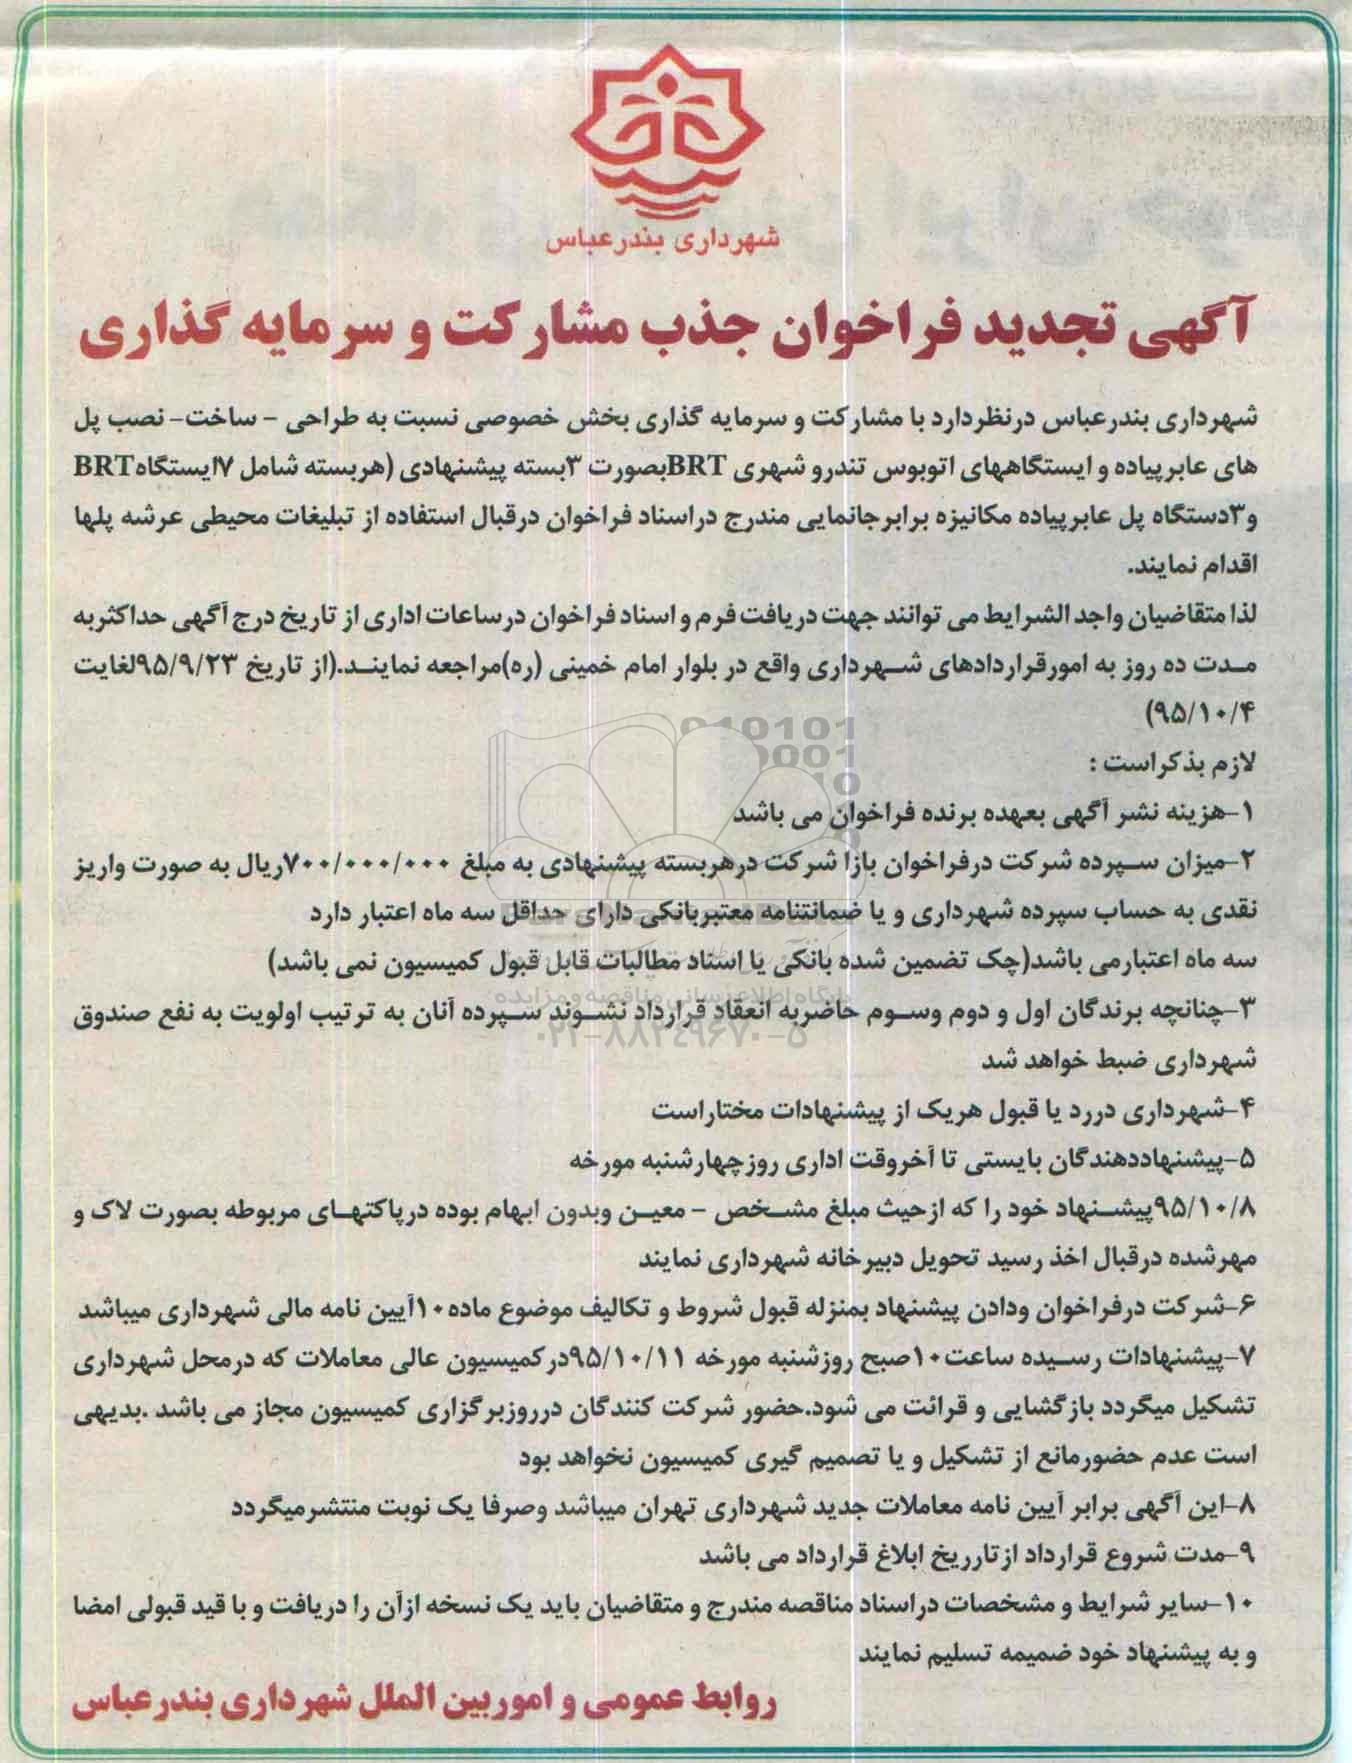 شهرداری بندرعباس
آگهی تجدید فراخوان جذب مشارکت و سرمایه گذاری
شهرداری بندرعباس درنظردارد با مشارکت و سرمایه گذاری بخش خصوصی نسبت به طراحی - ساخت- نصب پل
های عابرپیاده و ایستگاههای اتوبوس تندرو شهری BRTبصورت ۳بسته پیشنهادی (هربسته شامل ۷ایستگاهBRT
و۳دستگاه پل عابرپیاده مکانیزه برابرجانمایی مندرج دراسناد فراخوان درقبال استفاده از تبلیغات محیطی عرشه پلها
اقدام نمایند.
لذا متقاضیان واجد الشرایط می توانند جهت دریافت فرم و اسناد فراخوان درساعات اداری از تاریخ درج آگهی حداکثربه
مدت ده روز به امورقراردادهای شهرداری واقع در بلوار امام خمینی (ره)مراجعه نمایند.(از تاریخ ۹۵/۹/۲۳لغایت
۹۵/۱۰/۴)
لازم بذکراست :
۱-هزینه نشر آگهی بعهده برنده فراخوان می باشد
۲-میزان سپرده شرکت درفراخوان بازا شرکت درهربسته پیشنهادی به مبلغ ۷۰۰/۰۰۰/۰۰۰ریال به صورت واریز
نقدی به حساب سپرده شهرداری و یا ضمانتنامه معتبربانکی دارای حداقل سه ماه اعتبار دارد
سه ماه اعتبارمی باشد(چک تضمین شده بانکی یا اسناد مطالبات قابل قبول کمیسیون نمی باشد)
پایگاه اطلاع رسانی مناقصه و مزایده
۳-چنانچه برندگان اول و دوم وسوم حاضربه انعقاد قرارداد نشوند سپرده آنان به ترتیب اولویت به نفع صندوق
۰۲۱-۸۸۳۴۹۶۷۰-۵
شهرداری ضبط خواهد شد
۴-شهرداری دررد یا قبول هریک از پیشنهادات مختاراست
۵-پیشنهاددهندگان بایستی تا آخروقت اداری روزچهارشنبه مورخه
۹۵/۱۰/۸پیشنهاد خود را که ازحیث مبلغ مشخص - معین وبدون ابهام بوده درپاکتهای مربوطه بصورت لاک و
مهرشده درقبال اخذ رسید تحویل دبیرخانه شهرداری نمایند
۶-شرکت درفراخوان ودادن پیشنهاد بمنزله قبول شروط و تکالیف موضوع ماده۱۰آیین نامه مالی شهرداری میباشد
۷-پیشنهادات رسیده ساعت۱۰صبح روزشنبه مورخه ۹۵/۱۰/۱۱درکمیسیون عالی معاملات که درمحل شهرداری
تشکیل میگردد بازگشایی و قرائت می شود.حضور شرکت کنندگان درروزبرگزاری کمیسیون مجاز می باشد .بدیهی
است عدم حضورمانع از تشکیل و یا تصمیم گیری کمیسیون نخواهد بود
۸-این آگهی برابر آیین نامه معاملات جدید شهرداری تهران میباشد وصرفا یک نوبت منتشرمیگردد
۹-مدت شروع قرارداد ازتارریخ ابلاغ قرارداد می باشد
۱۰-سایر شرایط و مشخصات دراسناد مناقصه مندرج و متقاضیان باید یک نسخه ازآن را دریافت و با قید قبولی امضا
و به پیشنهاد خود ضمیمه تسلیم نمایند
روابط عمومی و اموربین الملل شهرداری بندرعباس